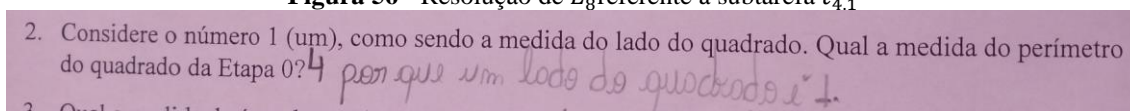 Figura 56 - Resolução de Egreferente à subtarefa t4.1
2. Considere o número 1 (um), como sendo a medida do lado do quadrado. Qual a medida do perímetro
do quadrado da Etapa 0? 4 por que um lado do quadrado é 1.